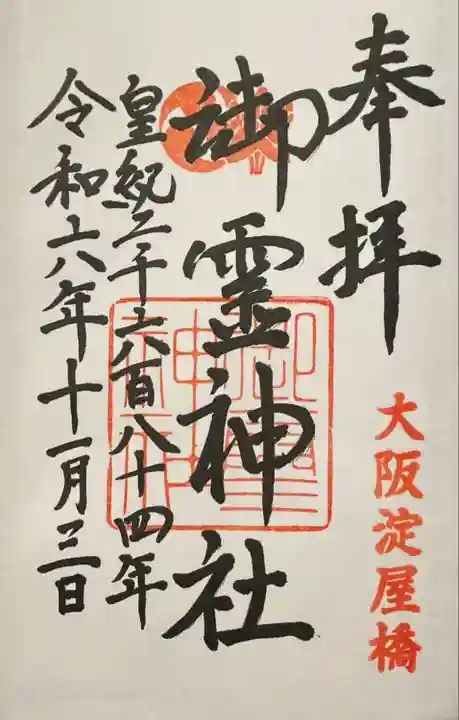 奉拝
大阪淀屋橋
御霊神社
皇紀二千六百八十四年
令和六年十一月三日